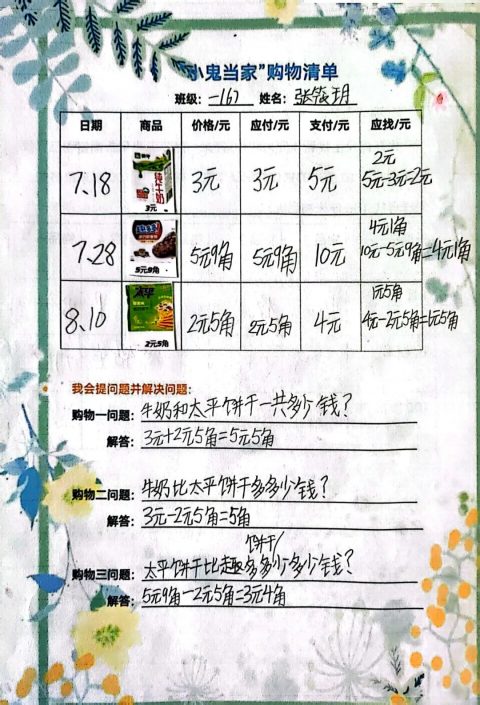 “小鬼当家”购物清单
班级：一(6) 姓名：张筱玥
日期 商品 价格/元 应付/元 支付/元 应找/元
2元
7.18 3元 3元 5元 5元-3元=2元
纯牛奶
3元
4元1角
7.28 5元9角 5元9角 10元 10元-5元9角=4元1角
5元9角
1元5角
8.10 2元5角 2元5角 4元 4元-2元5角=1元5角
2元5角
我会提问题并解决问题：
购物一问题：牛奶和太平饼干一共多少钱？
解答：3元+2元5角=5元5角
购物二问题：牛奶比太平饼干多多少钱？
解答：3元-2元5角=5角
饼干
购物三问题：太平饼干比趣多多少多少钱？
解答：5元9角-2元5角=3元4角